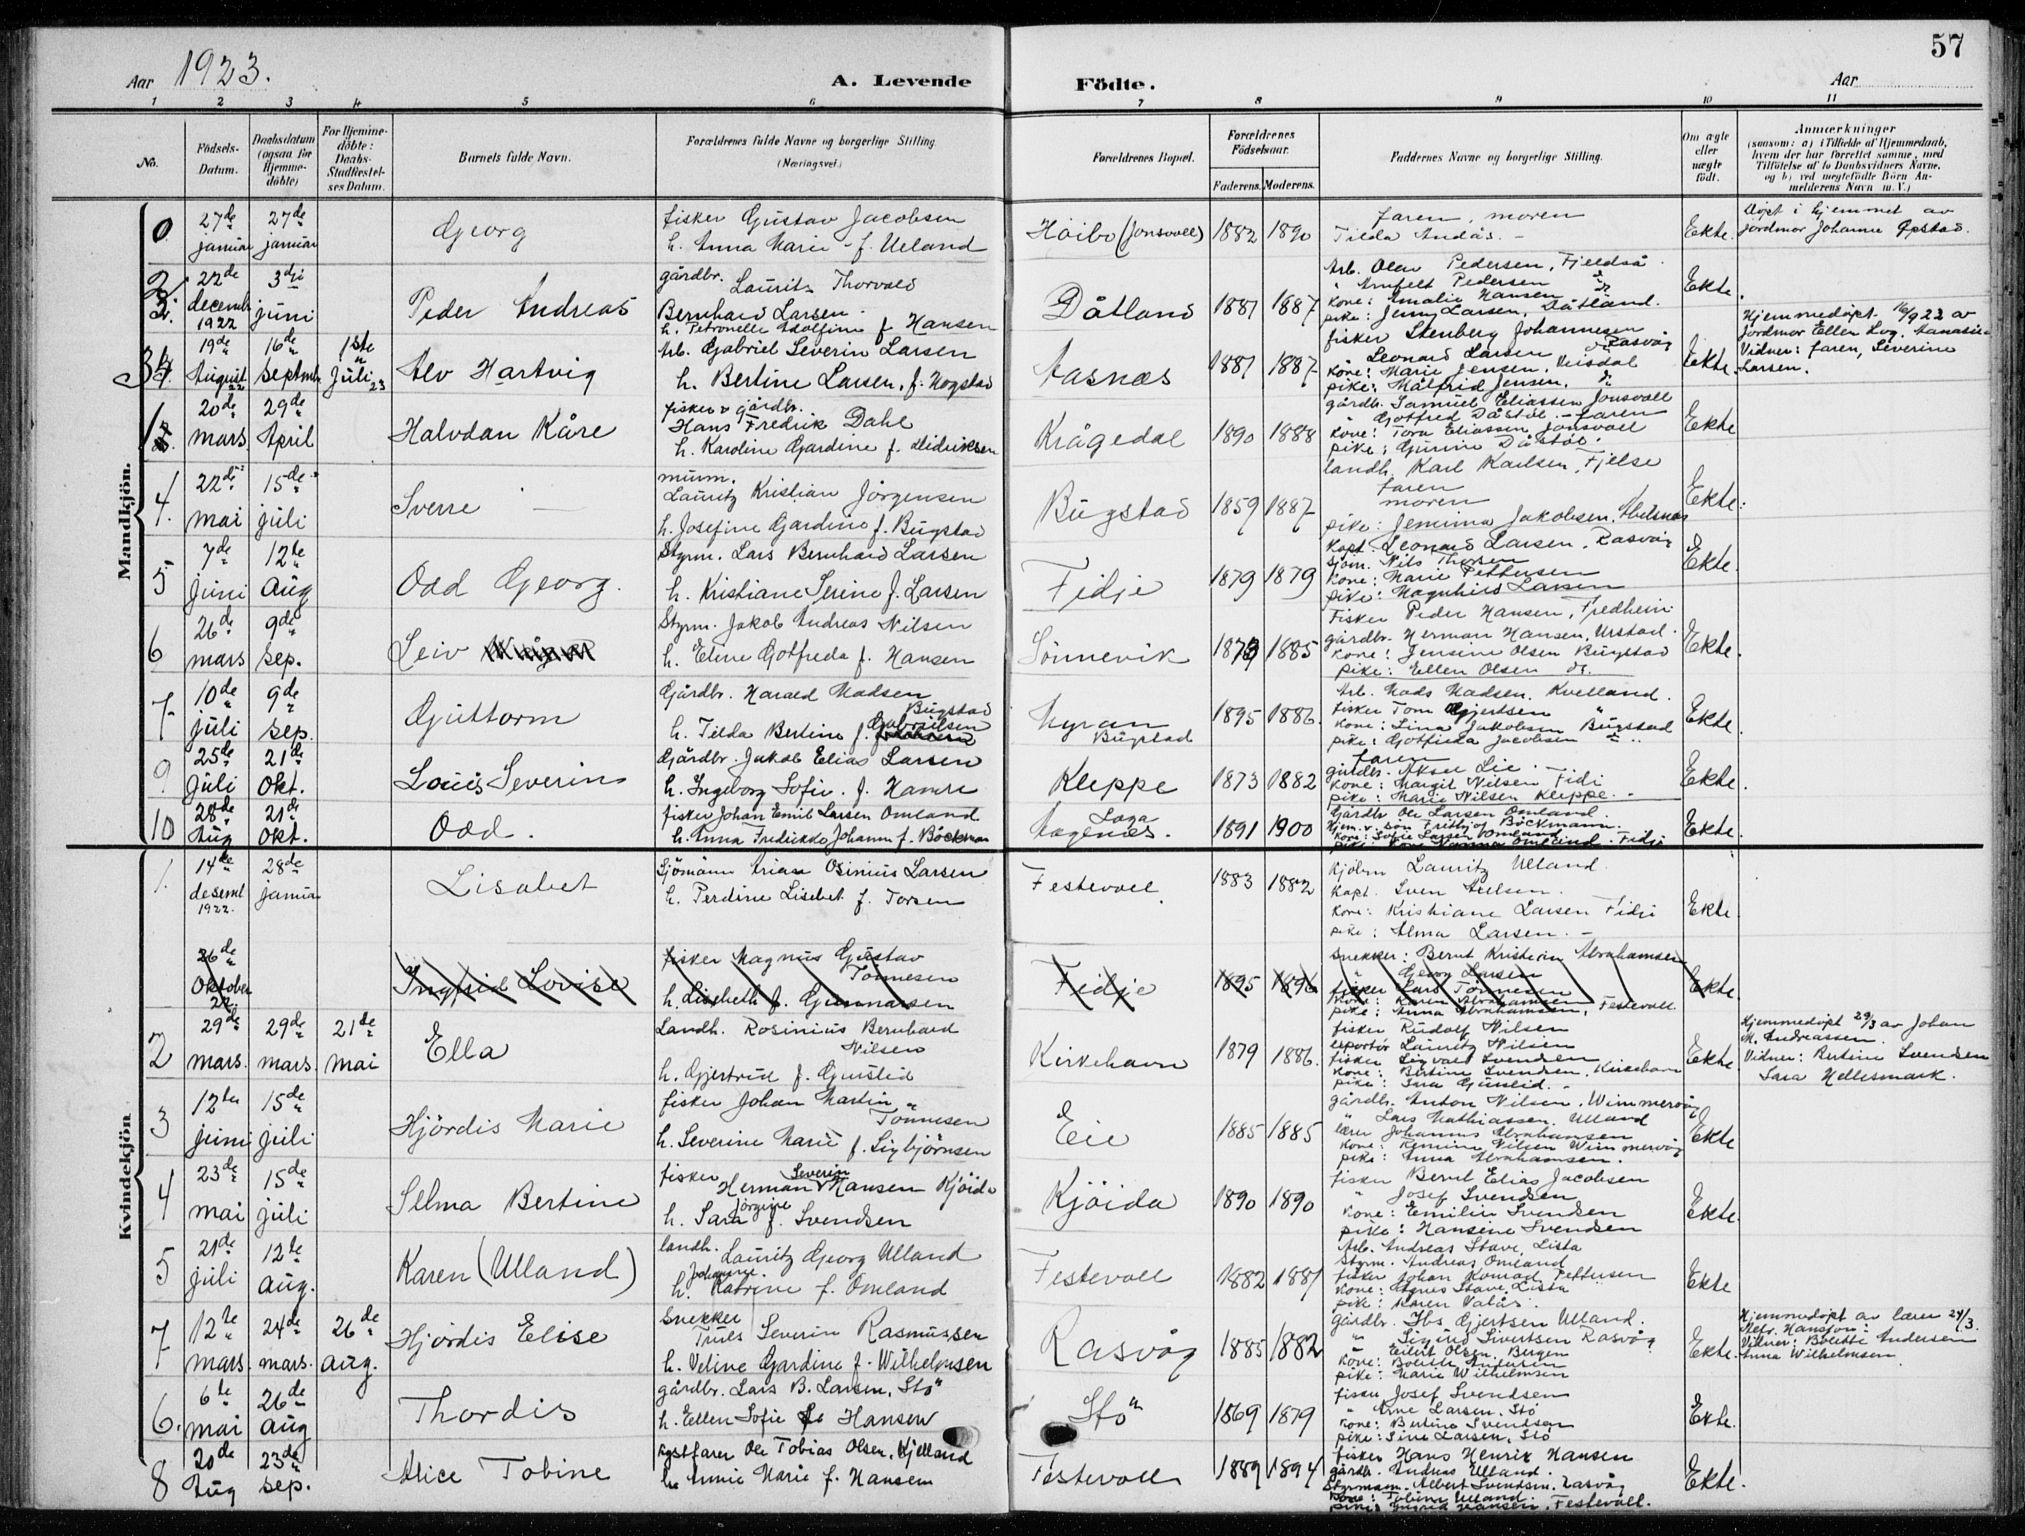 57
Aar 1923.
A. Levende Födte.
Aar
1 2 3 4 5 6 7 8 9 10 11
No.
Födsels-Datum.
Daabsdatum (ogsaa for Hjemme-döbte)
For Hjemme-döbte: Daabs-Stadfestel-ses Datum.
Barnets fulde Navn.
Forældrenes fulde Navne og borgerlige Stilling (Næringsvei.)
Forældrenes Bopæl.
Forældrenes Födselsaar.
Faderens. Moderens.
Faddernes Navne og borgerlige Stilling.
Om ægte eller uægte födt.
Anmærkninger
(saasom: a) i Tilfælde af Hjemmedaab, hvem der har forrettet samme, med Tilföielse af to Daabsvidners Navne, og b) ved uegtefödte Börn An-melderens Navn m. V.)
Mandkjön.
0 27de januar 27de januar Georg
fisker Gustav Jacobsen
h. Anna Marie f. Ueland
Höibo (Jonsvoll) 1882 1890
faren, moren
Tilda Andås.
Ekte.
döpt i hjemmet av
jordmor Johanne Opstad.
2 22de decembr 1922 3die juni Peder Andreas
gårdbr. Lauritz Thorvald
Bernhard Larsen
h. Petronelle Adolfine f Hansen
Dåtland 1881 1887
Arb. Olav Pedersen, Fjeldså
" Arnfelt Pedersen
Kone: Amalie Hansen
pike: Jenny Larsen, Dåtland.
Ekte.
3 19de August 22 16de septmbr 1ste Juli 23 Alv Hartvig
Arb. Gabriel Severin Larsen
h. Bertine Larsen, f. Hogstad
Aasnæs 1881 1887
fisker Stenberg Johannesen
Leonard Larsen Rasvåg
Kone: Marie Jensen, Veisdal
pike: Målfrid Jensen,
Ekte.
Hjemmedöpt 16/9 22 av
Jordmor Ellen Log. Aanasira
Vidner: faren, Severine
Larsen.
1 20de mars 29de April Halvdan Kåre
fisker & gårdbr.
Hans Fredrik Dahl
h. Karoline Gardine f. Didriksen
Krågedal 1890 1888
gårdb. Samuel Eliassen Jonsvoll
" Gotfred Dåstöl - faren
Kone: Tora Eliassen Jonsvoll
pike: Gurine Dåstöl.
Ekte
4. 22de mai 15de juli Sverre
murm.
Lauritz Kristian Jörgensen
h. Josefine Gardine f. Bugstad
Bugstad 1859 1887
landh. Karl Karlsen, Fjelse
faren
moren
pike: Jemima Jakobsen, Abelsnes
Ekte.
5 7de juni 12te Aug Odd Georg.
Styrm. Lars Bernhard Larsen
h. Kristiane Serine f. Larsen
Fidje 1879 1879
Kapt. Leonard Larsen, Rasvåg
Sjöm. Nils Thorsen
Kone: Marie Pettersen
pike: Magnhild Larsen
Ekte.
6 26de mars 9de sep. Leiv
Styrm. Jakob Andreas Nilsen
h. Eline Gotfreda f. Hansen
Sönnevik 1873 1885
Fisker Peder Hansen, Fredheim
gårdbr. Herman Hansen, Urstad
Kone: Jensine Olsen Bugstad
pike: Ellen Olsen do.
Ekte.
7 10de juli 9de sep. Guttorm
Gårdbr. Harald Madsen Bugstad
h. Tilda Bertine f. Gabrielsen
Myran Bugstad 1895 1886
Arb. Mads Madsen, Kvelland.
fisker Tom Gjertsen
Kone: Lina Jakobsen Bugstad
pike: Gotfreda Jacobsen
Ekte.
9 25de juli 21de Okt. Louis Severin
Gårdbr. Jakob Elias Larsen
h. Ingeborg Sofie f. Hamre
Kleppe 1873 1882
faren
gårdbr. Aksel Lie.
Kone: Margit Nilsen Fidi
pike: Marie Nilsen Kleppe.
Ekte.
10 28de Aug 21de Okt. Odd.
fisker Johan Emil Larsen Omland
h. Anna Fredrikke Johanne f. Böckman
Loga 1891 1900
Gårdbr Ole Larsen Omland.
Fritbjof Böckmann.
Kone: Sofie Larsen Omland
Ekte.
Kvindekjön
1. 14de deseml 1922. 28de januar Lisabet
Sjömann Arian Osinius Larsen
h. Perdine Lisebet f. Torsen
Festevoll 1883 1882
Kjölm Lauritz Ulland
Kapt. Sven Axelsen.
Kone: Kristiane Larsen Fidji
pike: Alma Larsen.
Ekte.
26de Oktober 22 Ingfrid Lovise
fisker Magnus Gustav Tönnesen
h. Lisebeth f. Gunnarsen
Fidje 1895 1896
snekker: Bernt Kristian Abrahamsen
" Georg Larsen
fisker Lars Tönnesen
Kone: Karen Abrahamsen
pike: Anna Abrahamsen, Festevoll
Ekte.
2 29de mars. 29de mars. 21de mai Ella
Landh. Rosinius Bernhard Nilsen
h. Gjertrud f. Guislid
Kirkehavn 1879 1886.
fisker Rudolf Nilsen
eksportör Lauritz Nilsen
fisker Sigvald Svendsen
Kone: Bertine Svendsen, Kirkehavn
pike: Sara Guislid.
Ekte
Hjemmedöpt 29/3 av Johan
M. Andreassen.
Vidner: Bertine Svendsen
Sara Hellesmark.
3 12te juni 15de juli Hjördis Marie
fisker Johan Martin Tönnesen
h. Severine Marie f. Sigbjörnsen
Eie 1885 1885
gårdb. Anton Nilsen, Wimmervåg
" Lars Mathiassen, Ulland
lærer Johannes Abrahamsen
Kone: Nilsen Wimmervåg
pike: Anna Abrahamsen.
Ekte
4 23de mai 15de juli Selma Bertine
fisker Herman Severin Hansen Kjöida
h. Sara Jörgine f. Svendsen
Kjöida 1890 1890
fisker Bernt Elias Jacobsen
" Josef Svendsen
Kone: Emilie Svendsen
pike: Hansine Svendsen
Ekte.
5 21de juli 12te aug. Karen (Ulland)
landh. Lauritz Georg Ulland
h. Johanne Katrine f. Omland
Festevoll 1882 1881
Arb. Andreas Stave, Lista
Styrm. Andreas Omland
fisker Johan Konrad Pettersen
Kone: Agnes Stave, Lista
pike: Karen Valås.
Ekte
7 12te mars. 24de mars. 26de aug. Hjördis Elise
Snekker
Truls Severin Rasmussen
h. Veline Gardine f. Wilhelmsen
Rasvåg 1885 1882
gårdbr. Gjertsen Ulland.
" Sigurd Sivertsen Rasvåg
Eilert Olsen, Bergen
Kone: Bolette Andersen
pike: Marie Wilhelmsen
Ekte.
Hjemmedöpt av lærer 24/3.
Hansson:
Vidner: Bolette Andersen
Anna Wilhelmsen.
6. 6te mai 26de aug Thordis
gårdbr. Lars B. Larsen, Stö
h. Ellen Sofie f. Hansen
Stö 1869 1879
fisker Josef Svendsen
" Arne Larsen, Stö
Kone: Bertine Svendsen
pike: Sine Larsen, Stö
Ekte.
8 20de Aug 23de sep. Alice Tobine
kystfarer Ole Tobias Olsen, Kjelland
h. Annie Marie f. Hansen
Festevoll 1889 1894
fisker Hans Henrik Hansen
gårdb. Andreas Ulland.
Styrmann. Albert Svendsen, Rasvåg
Kone: Tobine Ulland.
pike: Ingrid Hansen, Festevoll.
Ekte.